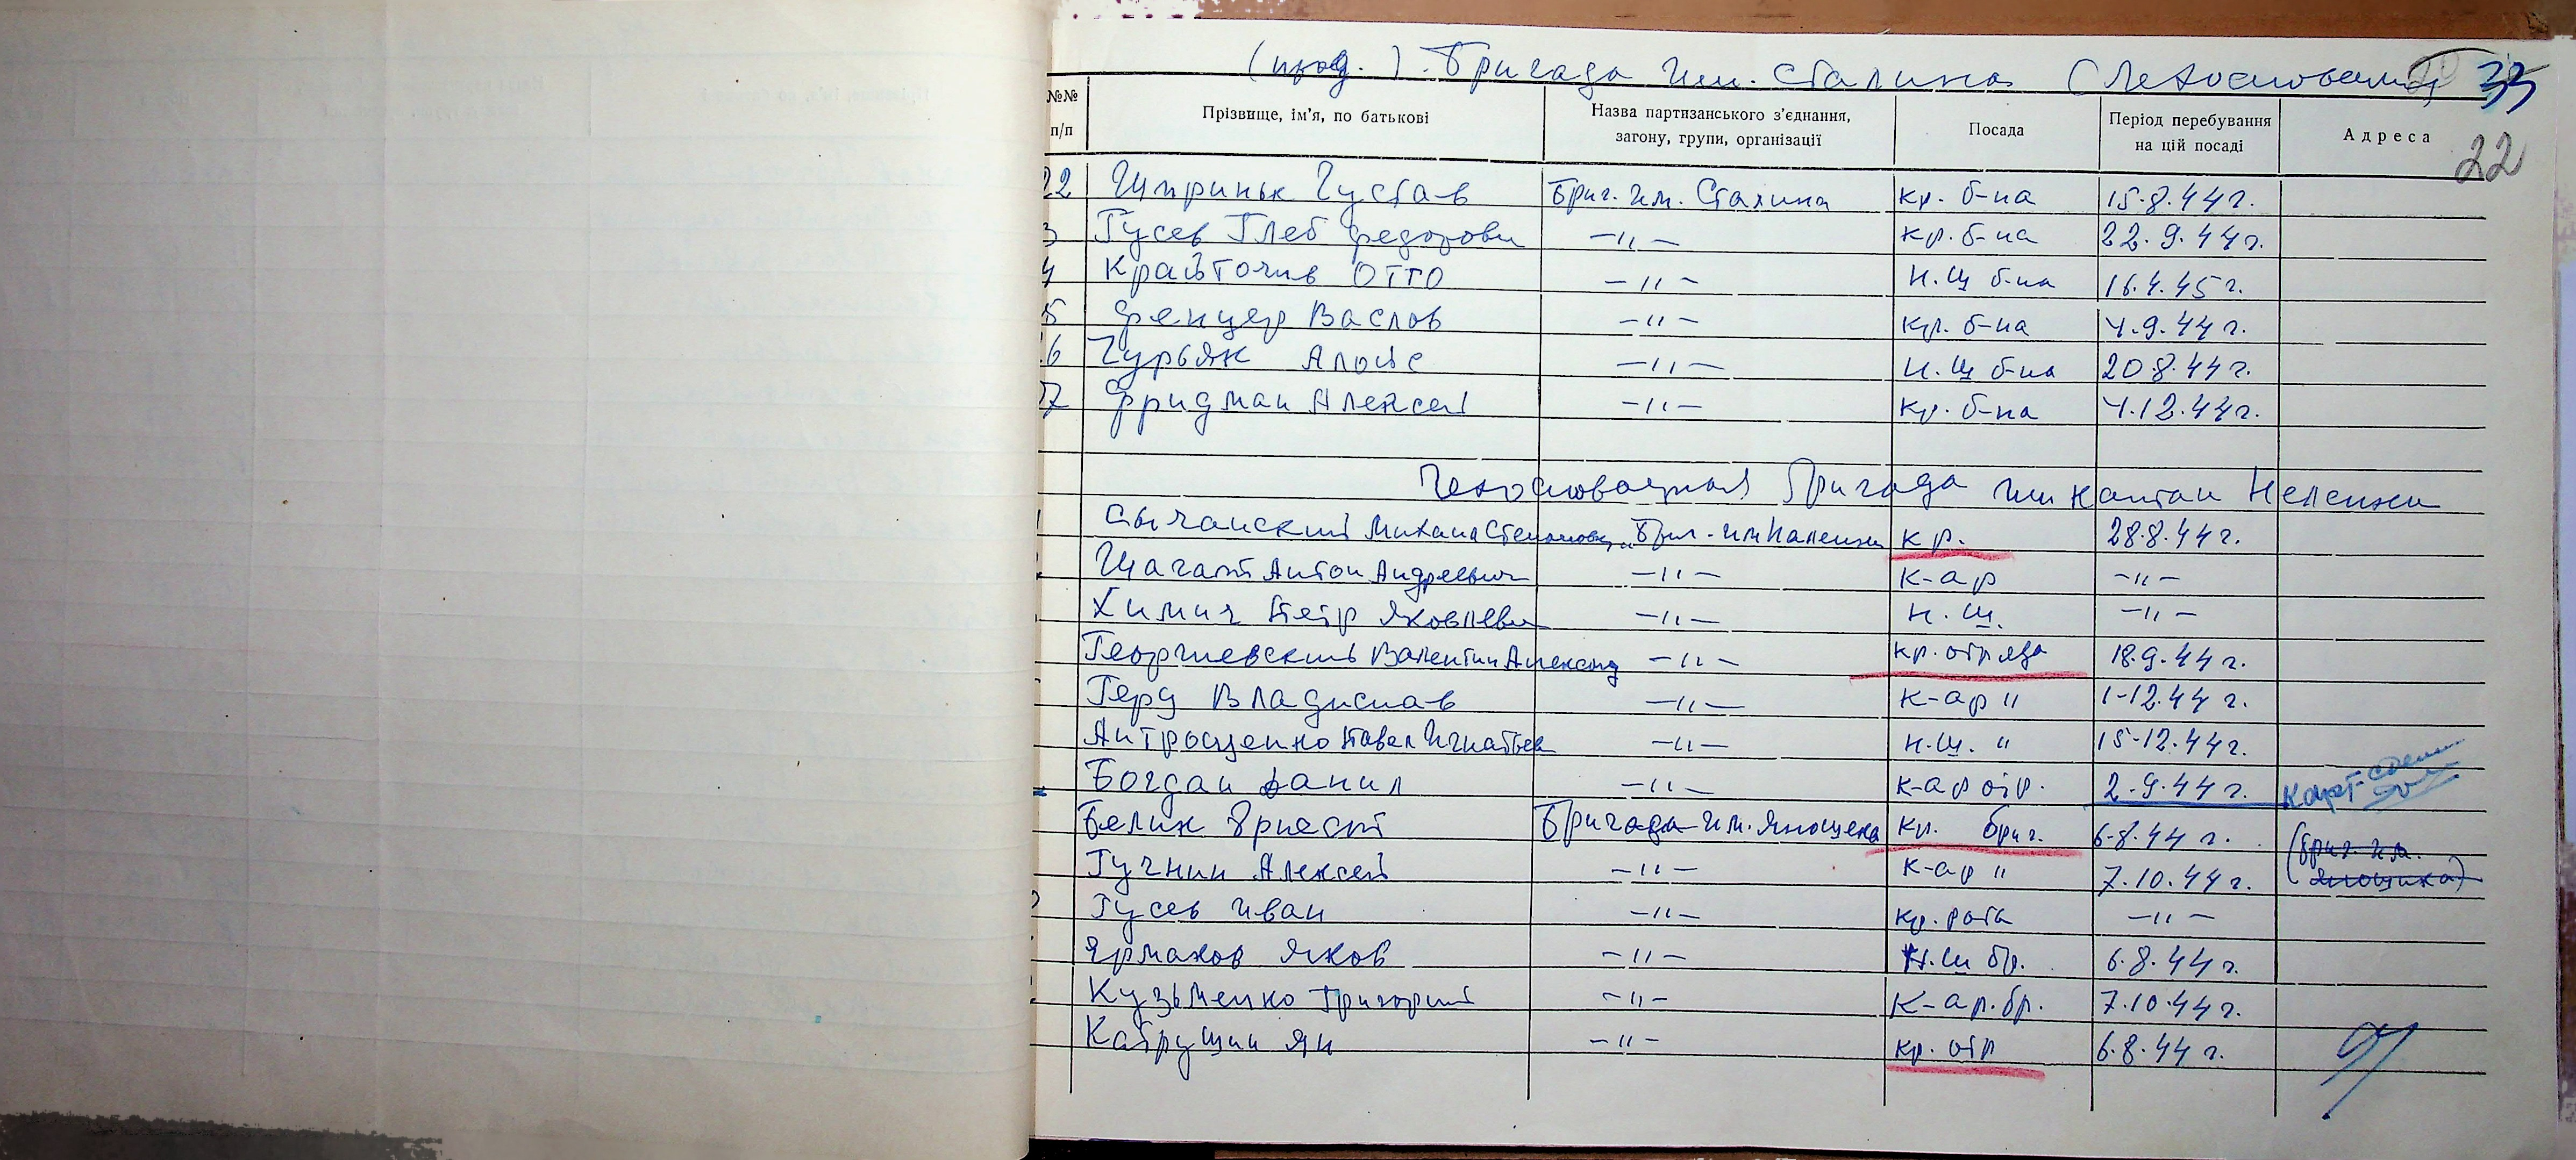 (прод.). Бригада им. Сталина (Чехословацкая) 33
№№ п/п Прізвище, ім'я, по батькові Назва партизанського з'єднання, загону, групи, організації Посада Період перебування на цій посаді Адреса
22
22 Густав Бриг. им. Сталина кр. б-на 15.8.44 г.
3 Гусев Глеб Федорович —〃— кр. б-на 22.9.44 г.
4 Отто —〃— н.ш б-на 16.4.45 г.
5 Фенцер Васлов —〃— кр. б-на 4.9.44 г.
6 Гурьяк Алойс —〃— н.ш б-на 20.8.44 г.
27 Фридман Алексей —〃— кр. б-на 4.12.44 г.
Чехословацкая Бригада им капитан Налепки
Сычанский Михаил Степанович Бриг. им Налепки кр. 28.8.44 г.
Шагат Антон Андреевич —〃— к-ар —〃—
Химич Петр Яковлевич —〃— н.ш. —〃—
Георгиевский Валентин Александ —〃— кр. отряда 18.9.44 г.
Герд Владислав —〃— к-ар 〃 1-12.44 г.
Антрощенко Павел Игнатьев —〃— н.ш. 〃 15-12.44 г.
Богдан Данил —〃— к-ар отр. 2-9.44 г.
Белик Эрнест Бригада им. Яношека кр. бриг. 6.8.44 г. (Бриг. им. Яношика)
Гучнин Алексей —〃— к-ар 〃 7.10.44 г.
Гусев Иван —〃— кр. рота —〃—
Ярмаков Яков —〃— н.ш бр. 6.8.44 г.
Кузьменко Григорий —〃— к-ар. бр. 7.10.44 г.
Кабрущин Ян —〃— кр. отр 6.8.44 г.